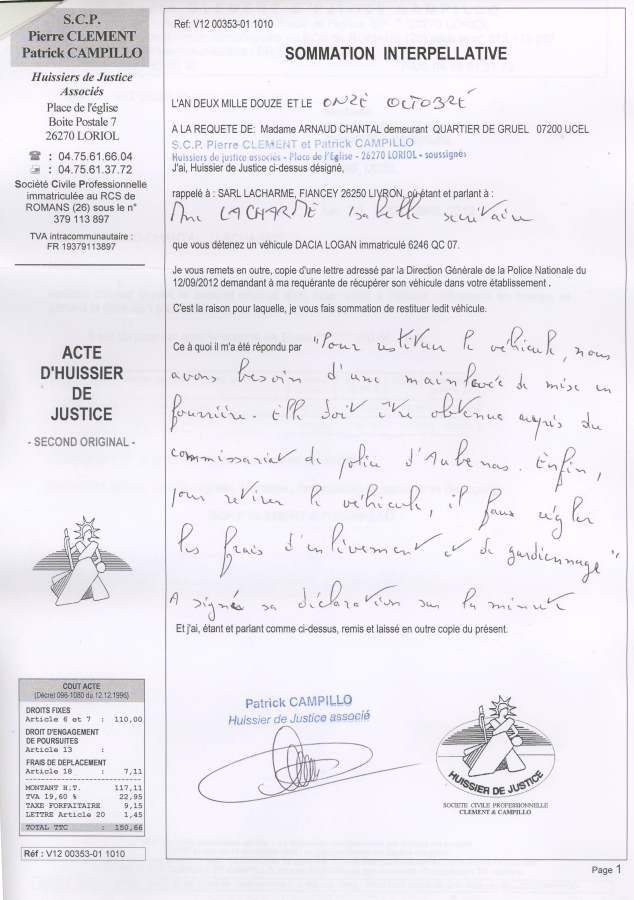 S.C.P.
Pierre CLEMENT
Patrick CAMPILLO
Huissiers de Justice
Associés
Place de l'église
Boite Postale 7
26270 LORIOL
☎ : 04.75.61.66.04
: 04.75.61.37.72
Société Civile Professionnelle
immatriculée au RCS de
ROMANS (26) sous le n°
379 113 897
TVA intracommunautaire :
FR 19379113897
ACTE
D'HUISSIER
DE
JUSTICE
- SECOND ORIGINAL -
COUT ACTE
(Décret 096-1080 du 12.12.1996)
DROITS FIXES
Article 6 et 7 : 110,00
DROIT D'ENGAGEMENT
DE POURSUITES
Article 13 :
FRAIS DE DEPLACEMENT
Article 18 : 7,11
MONTANT H.T. 117,11
TVA 19,60 % 22,95
TAXE FORFAITAIRE 9,15
LETTRE Article 20 1,45
TOTAL TTC : 150,66
Réf : V12 00353-01 1010
Ref: V12 00353-01 1010
SOMMATION INTERPELLATIVE
L'AN DEUX MILLE DOUZE ET LE ONZE OCTOBRE
A LA REQUETE DE: Madame ARNAUD CHANTAL demeurant QUARTIER DE GRUEL 07200 UCEL
S.C.P. Pierre CLEMENT et Patrick CAMPILLO
Huissiers de justice associés - Place de l'Eglise - 26270 LORIOL - soussignés
J'ai, Huissier de Justice ci-dessus désigné,
rappelé à : SARL LACHARME, FIANCEY 26250 LIVRON, où étant et parlant à :
Mme LACHARME Isabelle secrétaire
que vous détenez un véhicule DACIA LOGAN immatriculé 6246 QC 07.
Je vous remets en outre, copie d'une lettre adressé par la Direction Générale de la Police Nationale du
12/09/2012 demandant à ma requérante de récupérer son véhicule dans votre établissement .
C'est la raison pour laquelle, je vous fais sommation de restituer ledit véhicule.
Ce à quoi il m'a été répondu par "Pour restituer le véhicule, nous
avons besoin d'une mainlevée de mise en
fourrière. Elle doit être obtenue auprès du
commissariat de police d'Aubenas. Enfin,
pour retirer le véhicule, il faut régler
les frais d'enlèvement et de gardiennage"
A signé sa déclaration sur la minute
Et j'ai, étant et parlant comme ci-dessus, remis et laissé en outre copie du présent.
Patrick CAMPILLO
Huissier de Justice associé
HUISSIER DE JUSTICE
SOCIETE CIVILE PROFESSIONNELLE
CLEMENT & CAMPILLO
Page 1